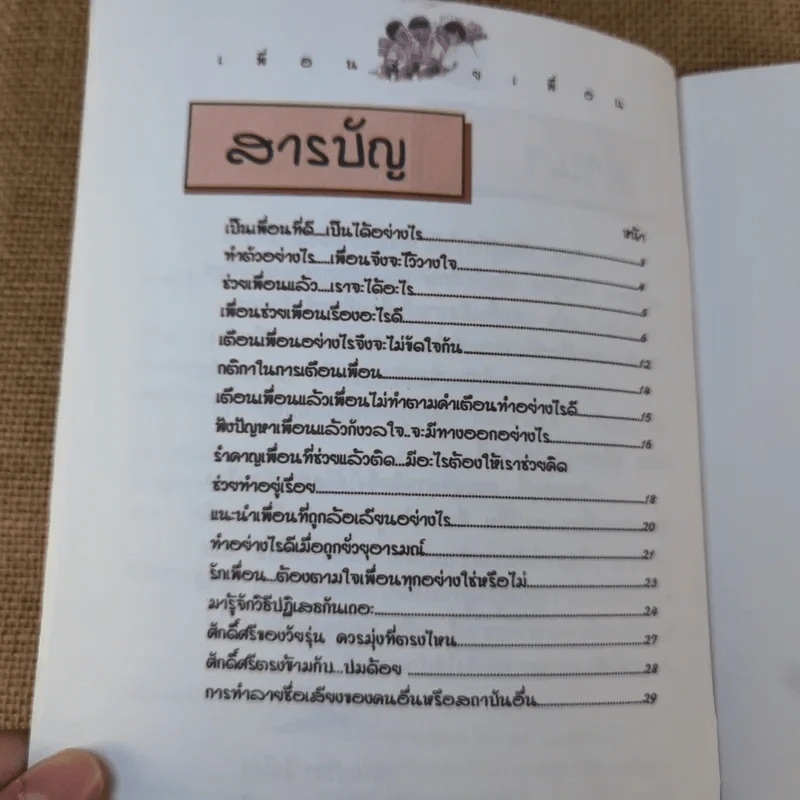 เพื่อนช่วยเพื่อน
สารบัญ
หน้า
เป็นเพื่อนที่ดี...เป็นได้อย่างไร
ทำตัวอย่างไร...เพื่อนจึงจะไว้วางใจ
ช่วยเพื่อนแล้ว...เราจะได้อะไร 5
เพื่อนช่วยเพื่อนเรื่องอะไรดี 6
เตือนเพื่อนอย่างไรจึงจะไม่ขัดใจกัน 12
กติกาในการเตือนเพื่อน 14
เตือนเพื่อนแล้วเพื่อนไม่ทำตามคำเตือนทำอย่างไรดี 15
ฟังปัญหาเพื่อนแล้วกังวลใจ..จะมีทางออกอย่างไร 16
รำคาญเพื่อนที่ช่วยแล้วติด...มีอะไรต้องให้เราช่วยคิด
ช่วยทำอยู่เรื่อย 18
แนะนำเพื่อนที่ถูกล้อเลียนอย่างไร 20
ทำอย่างไรดีเมื่อถูกยั่วยุอารมณ์ 21
รักเพื่อน...ต้องตามใจเพื่อนทุกอย่างใช่หรือไม่ 23
มารู้จักวิธีปฏิเสธกันเถอะ 24
ศักดิ์ศรีของวัยรุ่น ควรมุ่งที่ตรงไหน 27
ศักดิ์ศรีตรงข้ามกับ...ปมด้อย 28
การทำลายชื่อเสียงของคนอื่นหรือสถาบันอื่น 29